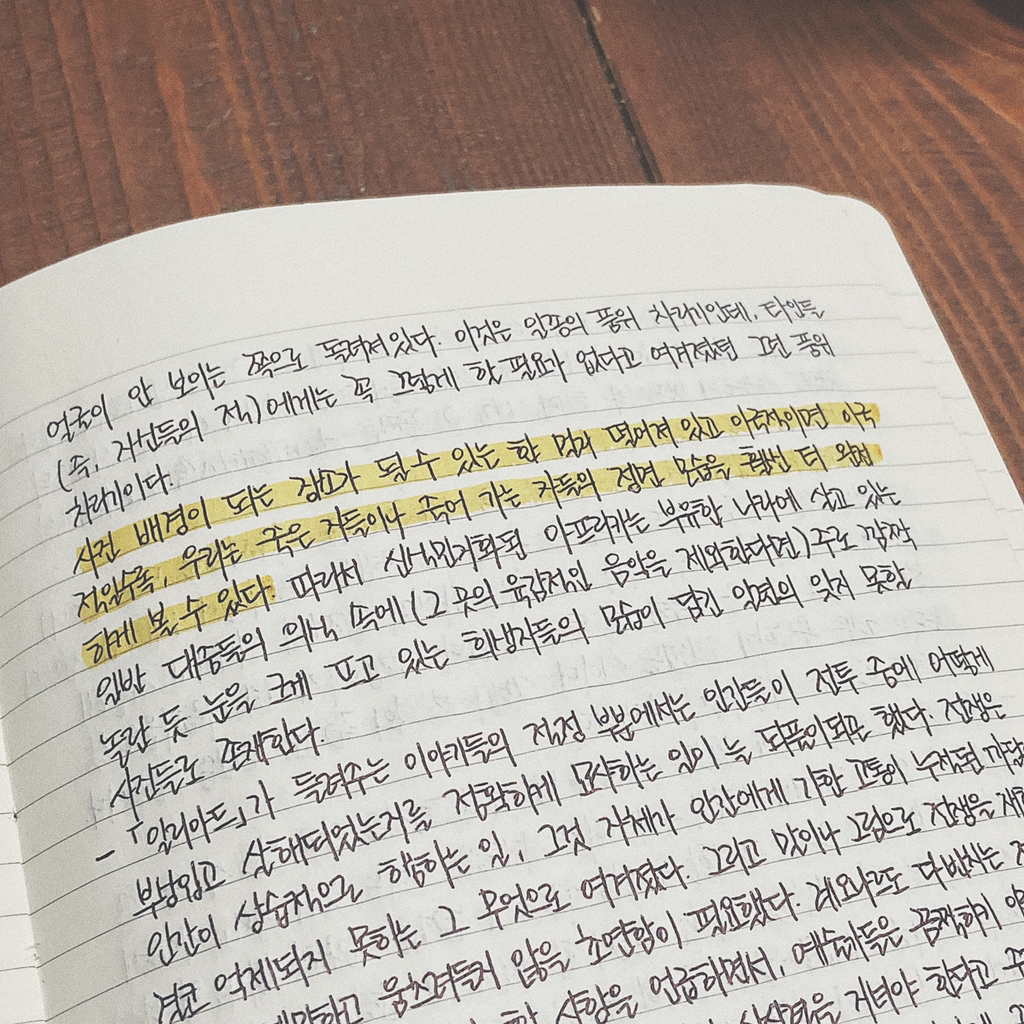 얼굴이 안 보이는 쪽으로 돌려져있다. 이것은 일종의 품위 차리기인데, 타인들
(즉, 자신들의 적)에게는 꼭 그렇게 할 필요가 없다고 여겨졌던 그런 품위
차리기이다.
사건 배경이 되는 장소가 될 수 있는 한 멀리 떨어져 있고 이국적이면 이국
적일수록, 우리는 죽은 자들이나 죽어 가는 자들의 정면 모습을 훨씬 더 완전
하게 볼 수 있다. 따라서 신식민지화된 아프리카는 부유한 나라에 살고 있는
일반 대중들의 의식 속에(그 곳의 육감적인 음악을 제외한다면)주로 깜짝
놀란 듯 눈을 크게 뜨고 있는 희생자들의 모습이 담긴 일련의 잊지 못할
사진들로 존재한다.
- 「일리아드」가 들려주는 이야기들의 절정 부분에서는 인간들이 전투 중에 어떻게
부상입고 살해되었는지를 정확하게 묘사하는 일이 늘 되풀이되곤 했다. 전쟁은
인간이 상습적으로 행하는 일, 그것 자체가 인간에게 가한 고통이 누적된
결코 억제되지 못하는 그 무엇으로 여겨졌다. 그리고 말이나 그림으로 전쟁을
움츠러들지 않을 초연함이 필요했다. 레오나르도 다빈치는
사항을 언급하면서, 예술가들은 끔찍하기
지녀야 한다고